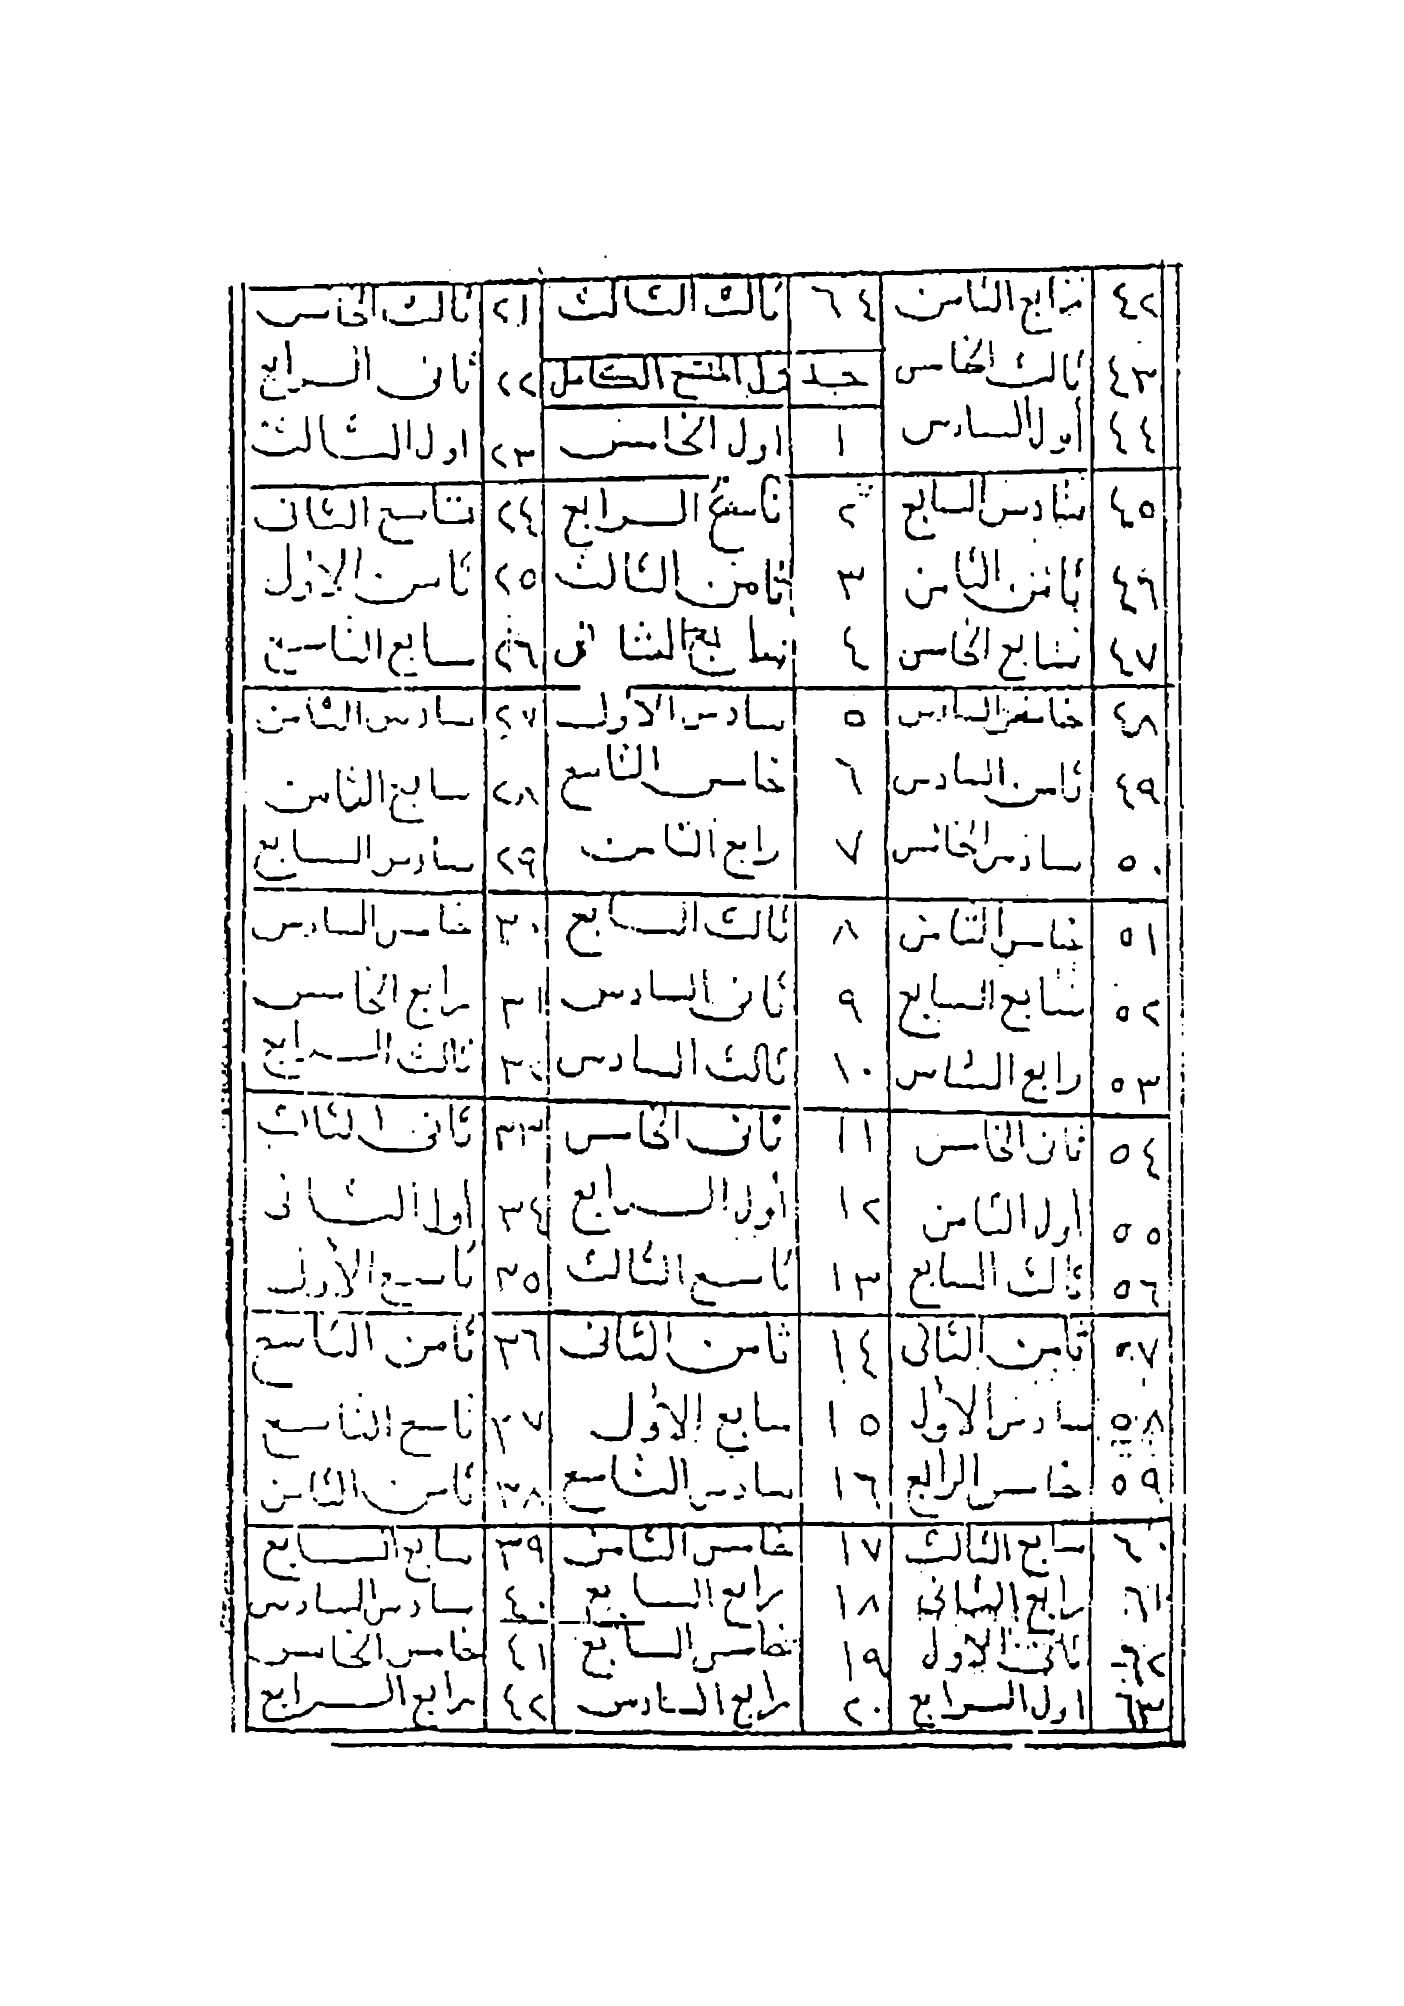 ٤٢ رابع الثامن ٦٤ ثالث الثالث ٢١ ثالث الخامس
٤٣ ثالث الخامس جدول المتسع الكامل ٢٢ ثانى الرابع
٤٤ أول السادس ١ اول الخامس ٢٣ اول الثالث
٤٥ سادس السابع ٢ تاسع الرابع ٢٤ تاسع الثانى
٤٦ ثامن الثامن ٣ ثامن الثالث ٢٥ ثامن الاول
٤٧ سابع الخامس ٤ سابع الثانى ٢٦ سابع التاسع
٤٨ خامس السادس ٥ سادس الاول ٢٧ سادس الثامن
٤٩ ثامن السادس ٦ خامس التاسع ٢٨ سابع الثامن
٥٠ سادس الخامس ٧ رابع الثامن ٢٩ سادس السابع
٥١ خامس الثامن ٨ ثالث السابع ٣٠ خامس السادس
٥٢ سابع السابع ٩ ثانى السادس ٣١ رابع الخامس
٥٣ رابع ١٠ ثالث السادس ٣٢ ثالث الرابع
٥٤ ثانى الخامس ١١ ثانى الخامس ٣٣ ثانى الثالث
٥٥ أول الثامن ١٢ أول الرابع ٣٤ اول الثانى
٥٦ ثالث السابع ١٣ تاسع الثالث ٣٥ تاسع الأول
٥٧ ثامن الثانى ١٤ ثامن الثانى ٣٦ ثامن التاسع
٥٨ سادس الأول ١٥ سابع الأول ٣٧ تاسع التاسع
٥٩ خامس الرابع ١٦ سادس التاسع ٣٨ ثامن الثامن
٦٠ سابع الثالث ١٧ خامس الثامن ٣٩ سابع السابع
٦١ رابع الثانى ١٨ رابع السابع ٤٠ سادس السادس
٦٢ ثانى الاول ١٩ خامس السابع ٤١ خامس الخامس
٦٣ اول الرابع ٢٠ رابع السادس ٤٢ رابع الرابع